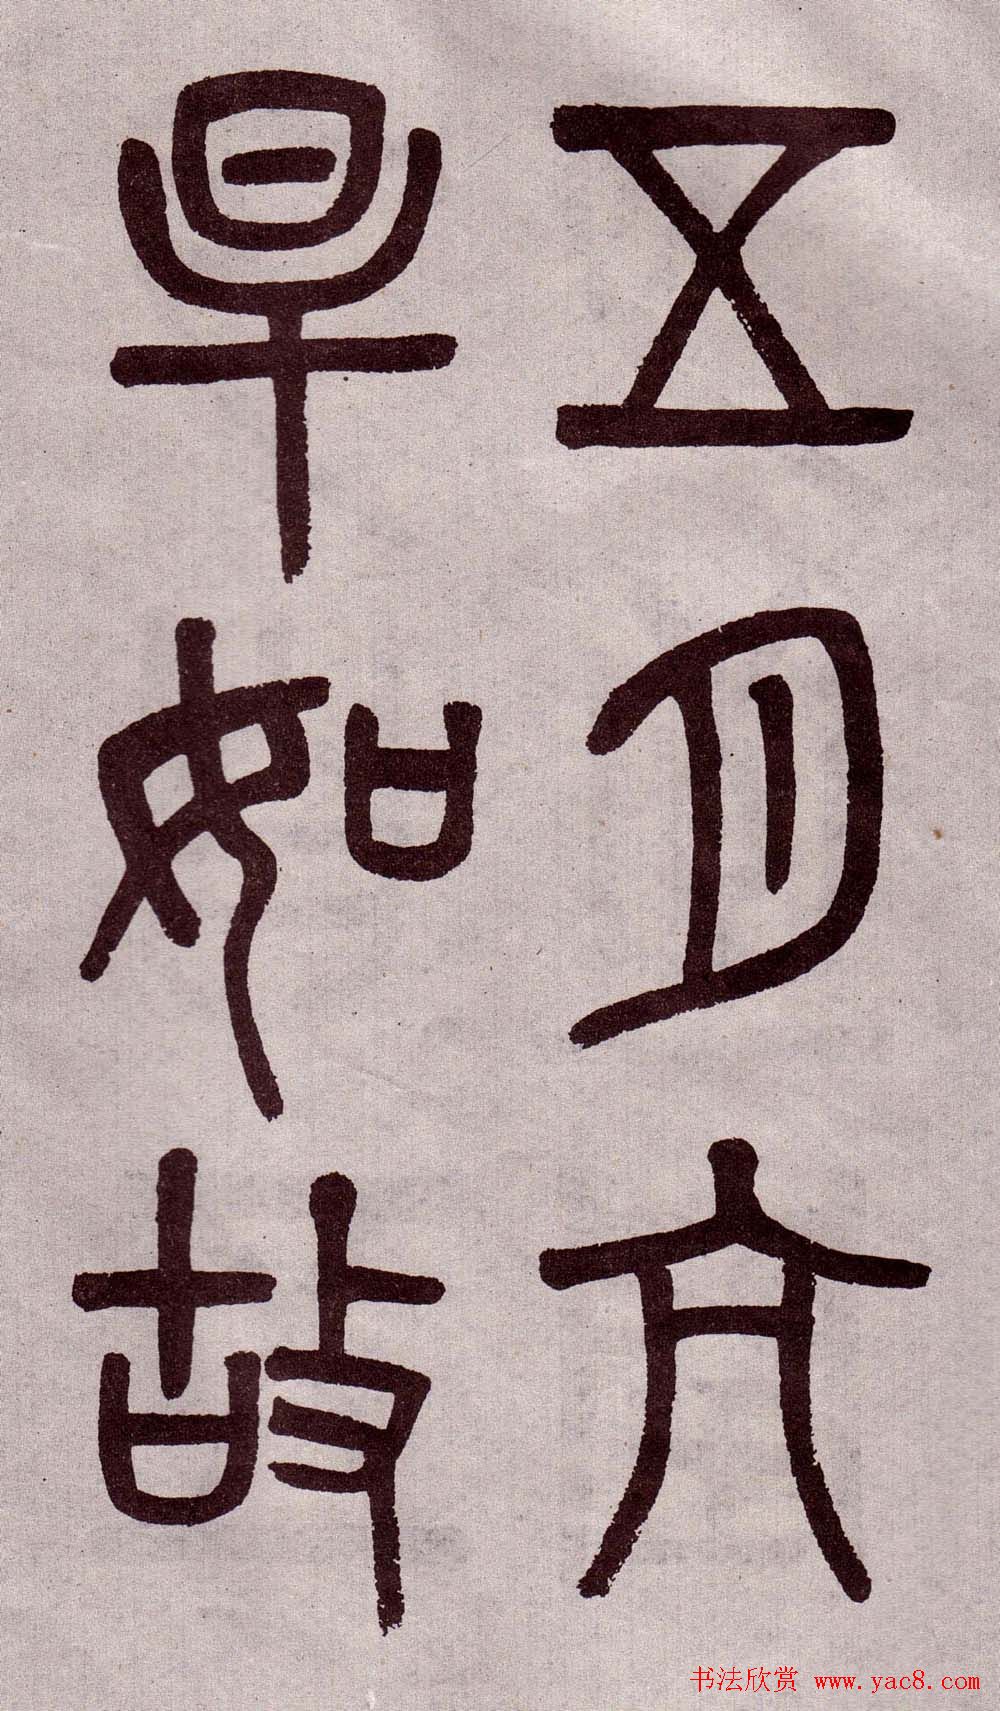 五月亢
旱如故
书法欣赏 www.yac8.com